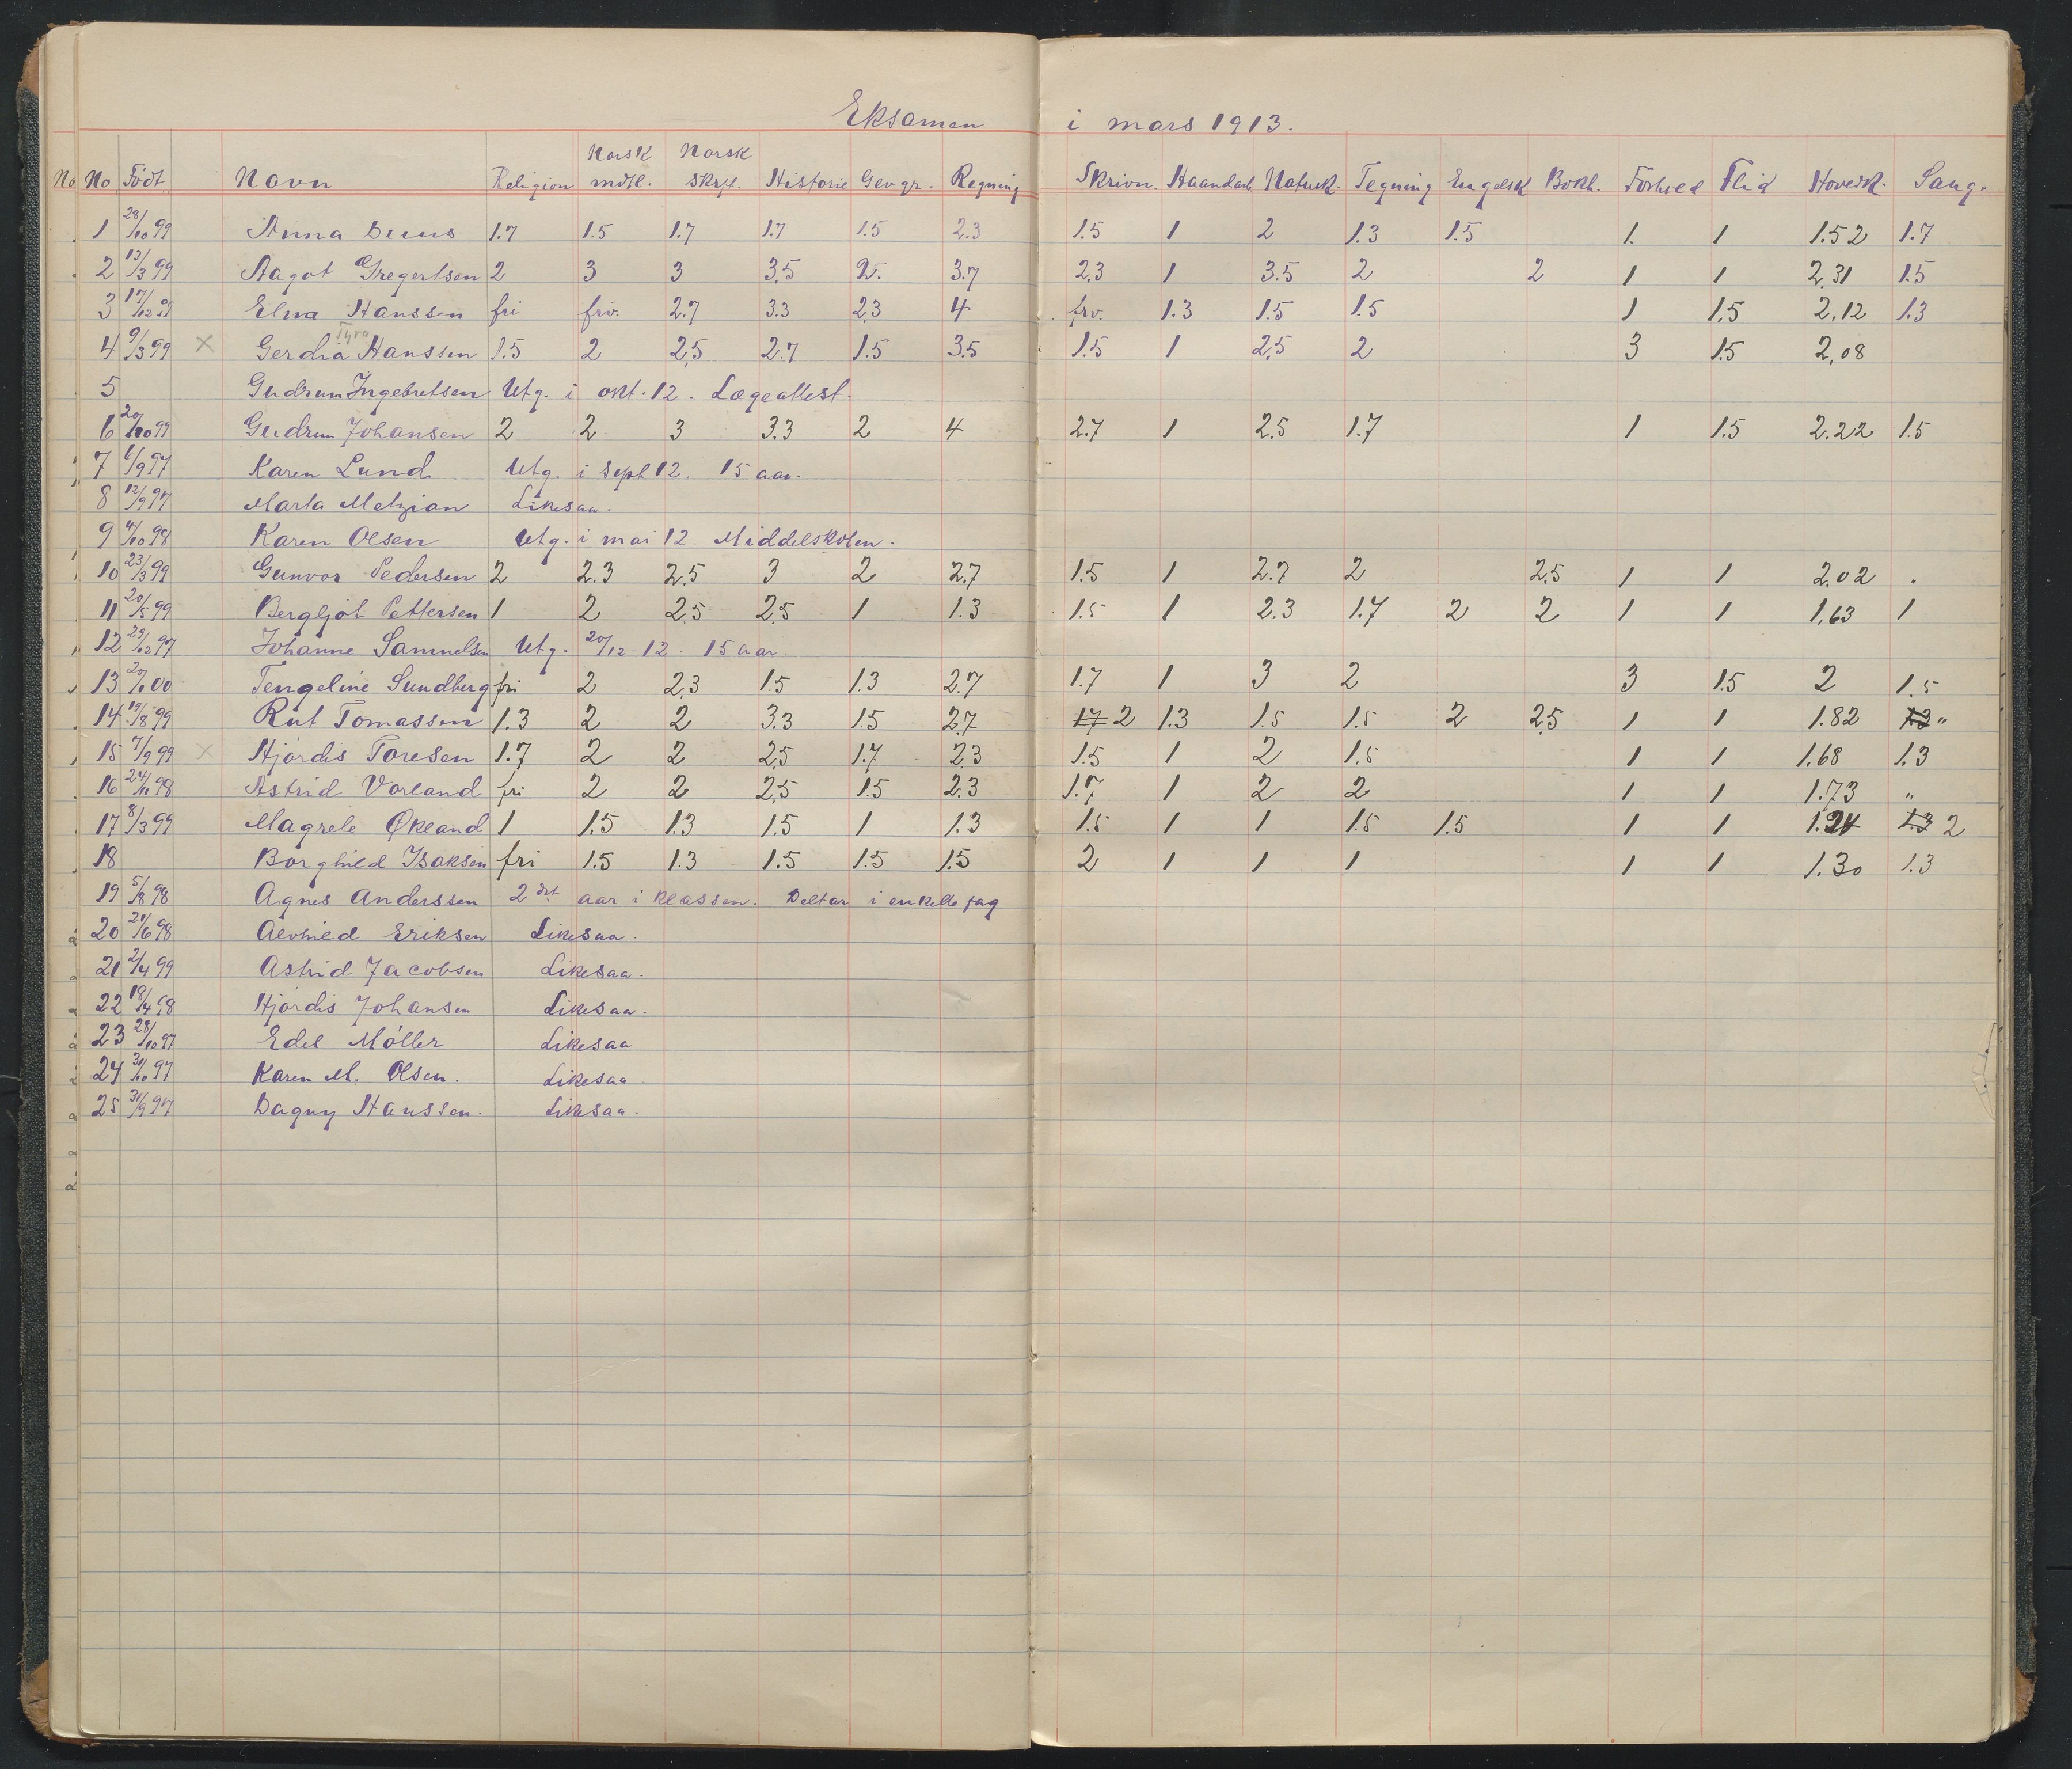 Eksamen i mars 1913.
No No Födt Navn Religion Norsk mdtl. Norsk skrftl. Historie Geogr. Regning Skrivn. Haandarb. Naturk. Tegning Engelsk Bokh. Forhold Flid Hovedk. Sang.
1 28/10 99 Anna 1.7 1.5 1.7 1.7 1.5 2.3 1.5 1 2 1.3 1.5 1. 1 1.52 1.7
2 13/3 99 Aagot Gregertsen 2 3 3 3.5 2. 3.7 2.3 1 3.5 2 2 1 1 2,31 1.5
3 17/12 99 Elna Hanssen fri frv. 2.7 3.3 2,3 4 frv. 1.3 1.5 1.5 1 1.5 2,12 1.3
Tyra
4 9/3 99 × Gerda Hanssen 1.5 2 2,5 2.7 1.5 3.5 1.5 1 2,5 2 3 1.5 2,08
5 Gudrun Ingebretsen Utg. i okt. 12. Lægeattest.
6 20/10 99 Gudrun Johansen 2 2 3 3.3 2 4 2.7 1 2.5 1.7 1 1.5 2.22 1.5
7 6/9 97 Karen Lund Utg. i sept 12. 15 aar.
8 12/9 97 Marta Metzion Likesaa.
9 4/10 98 Karen Olsen Utg. i mai 12. Middelskolen.
10 23/3 99 Gunvor Pedersen 2 2.3 2.5 3 2 2.7 1.5 1 2.7 2 2,5 1 1 2,02 .
11 20/5 99 Bergljot Pettersen 1 2 2,5 2,5 1 1.3 1.5 1 2.3 1.7 2 2 1 1 1,63 1
12 29/12 97 Johanne Samuelsen Utg. 20/12-12. 15 aar.
13 20/1 00 Tengeline Sundberg fri 2 2,3 1.5 1.3 2.7 1.7 1 3 2 3 1.5 2 1.5
14 19/8 99 Rut Tomassen 1.3 2 2 3.3 1.5 2.7 1.7 2 1.3 1.5 1.5 2 2,5 1 1 1.82 1.3 "
15 7/9 99 × Hjördis Toresen 1.7 2 2 2,5 1.7 2,3 1.5 1 2 1.5 1 1 1.68 1.3
16 24/11 98 Astrid Vorland fri 2 2 2,5 1.5 2.3 1.7 1 2 2 1 1 1.73 "
17 8/3 99 Magrete Økland 1 1.5 1.3 1.5 1 1.3 1.5 1 1 1.5 1.5 1 1 1.24 1.3 2
18 Borghild Isaksen fri 1.5 1.3 1.5 1.5 1.5 2 1 1 1 1 1 1.30 1.3
19 5/8 98 Agnes Anderssen 2det aar i klassen. Deltar i enkelte fag
20 21/6 98 Alvhild Eriksen Likesaa.
21 2/4 99 Astrid Jacobsen Likesaa.
22 18/4 98 Hjördis Johansen Likesaa.
23 28/10 97 Edel Möller Likesaa
24 30/10 97 Karen M. Olsen. Likesaa.
25 30/9 97 Dagny Hanssen. Likesaa.